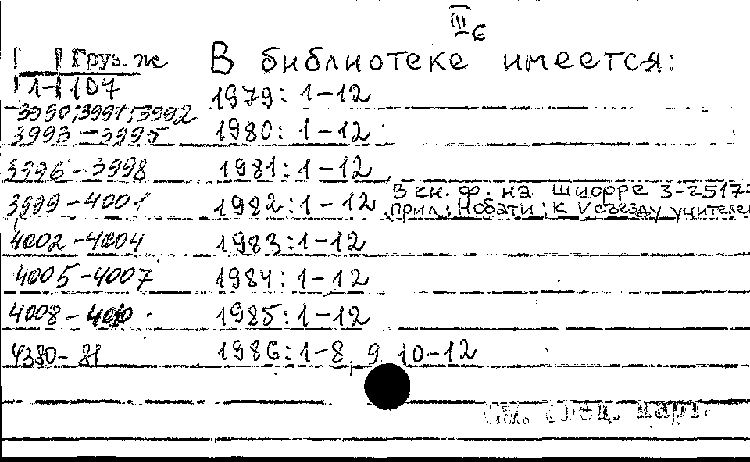 III б
Груз. ж В библиотеке имеется:
1-107 1979: 1-12
3990; 3991; 3992
3993-3995 1980: 1-12
3996-3998 1981: 1-12
3999-4001 1982: 1-12 В кн. ф. на шифре 3-2517-
прил.: Нобати; к V съезду учителей
4002-4004 1983: 1-12
4005-4007 1984: 1-12
4008-4010 1985: 1-12
4380-81 1986: 1-8, 9, 10-12
См. спец. карт.